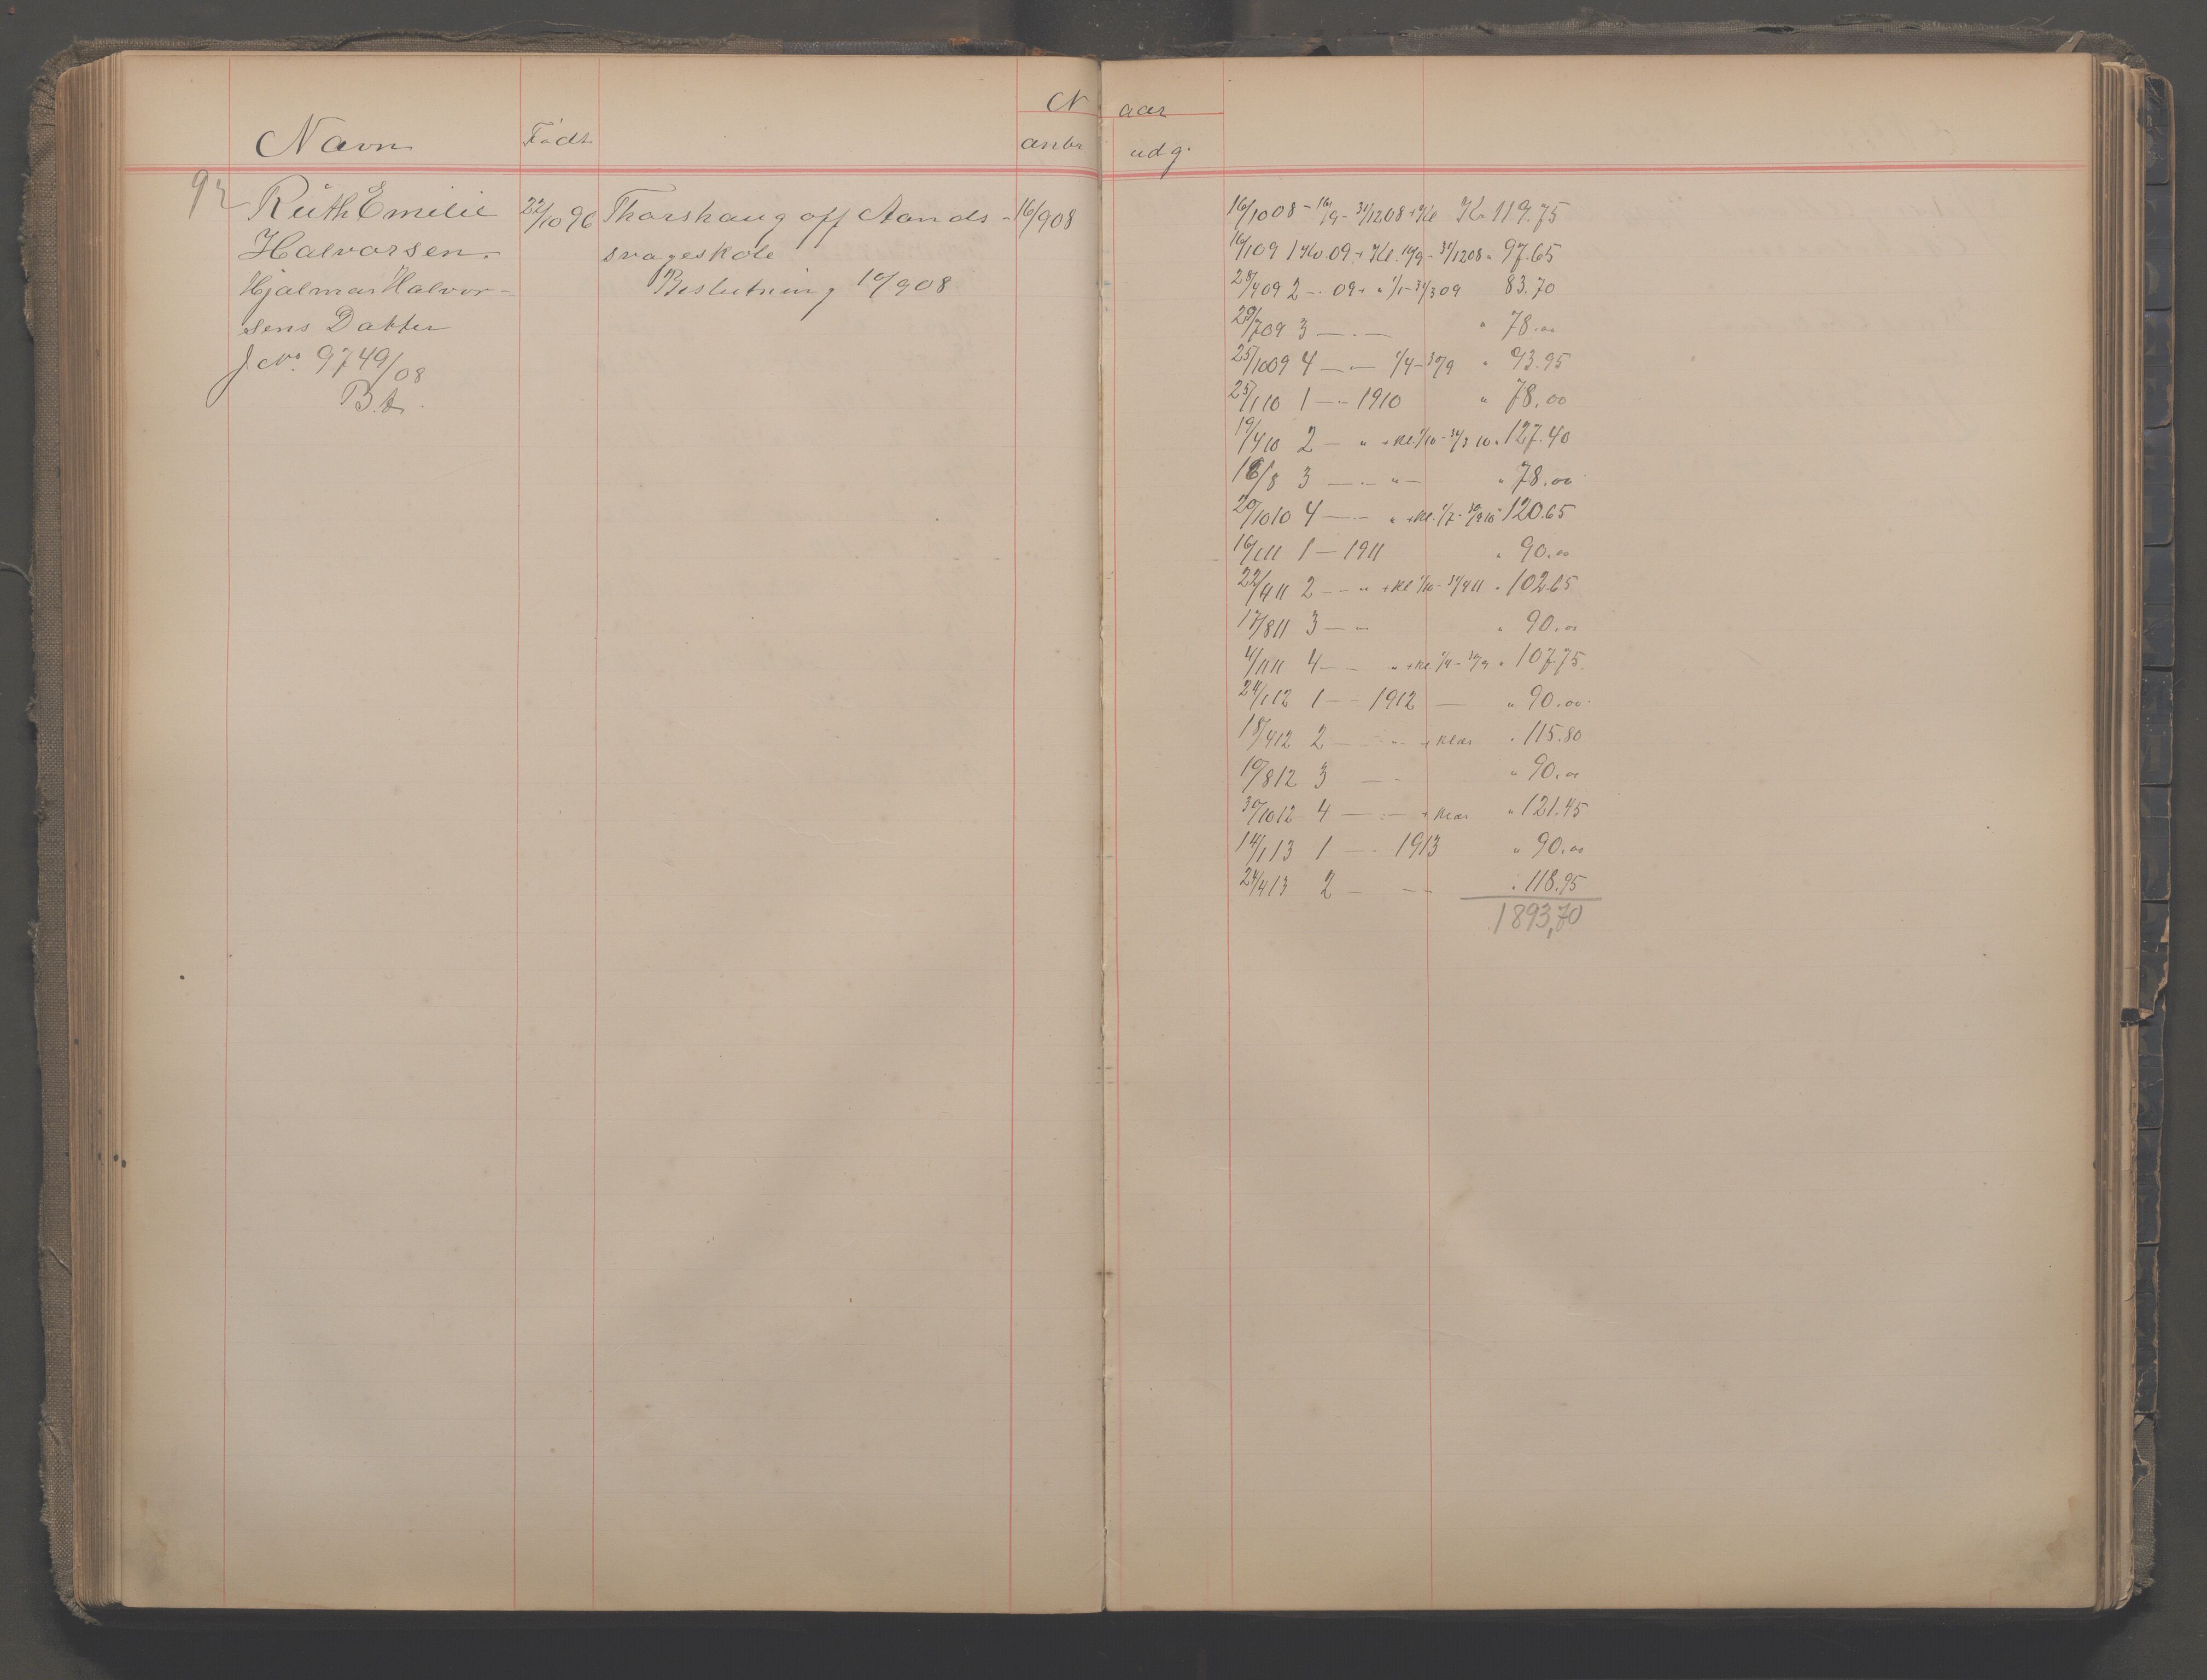 Navn Født N aar
anbr udg.
92 Ruth Emilie 22/10 96 Thorshaug off Aands- 16/9 08
Halvorsen. svageskole
Hjalmar Halvor- Beslutning 10/9 08
sens Datter
J No. 9749/08
B.d.
16/10 08 - 16/9 - 31/12 08 + Kl K. 119.75
16/1 09 1 Kv 09 + Kl. 16/9 - 31/12 08 " 97.65
28/4 09 2 - 09 + " 1/1 - 31/3 09 83.70
29/7 09 3 — . — " 78.00
25/10 09 4 — — 1/4 - 30/9 " 93.95
25/1 10 1 — 1910 " 78.00
19/4 10 2 — " + Kl. 1/10 - 31/3 10 " 127.40
16/8 3 — " — " 78.00
20/10 10 4 — " + Kl. 1/7 - 30/9 10 120.65
16/1 11 1 — 1911 " 90.00
22/4 11 2 — " + Kl 1/10 - 31/4 11 " 102.65
17/8 11 3 — " " 90.00
4/11 11 4 — " + Kl 1/4 - 30/9 " 107.75
24/1 12 1 — 1912 — " 90.00
18/4 12 2 — " + Klær " 115.80
19/8 12 3 — " 90.00
30/10 12 4 — + Klær " 121.45
14/1 13 1 — 1913 " 90.00
24/4 13 2 — — " 118.95
1893,70